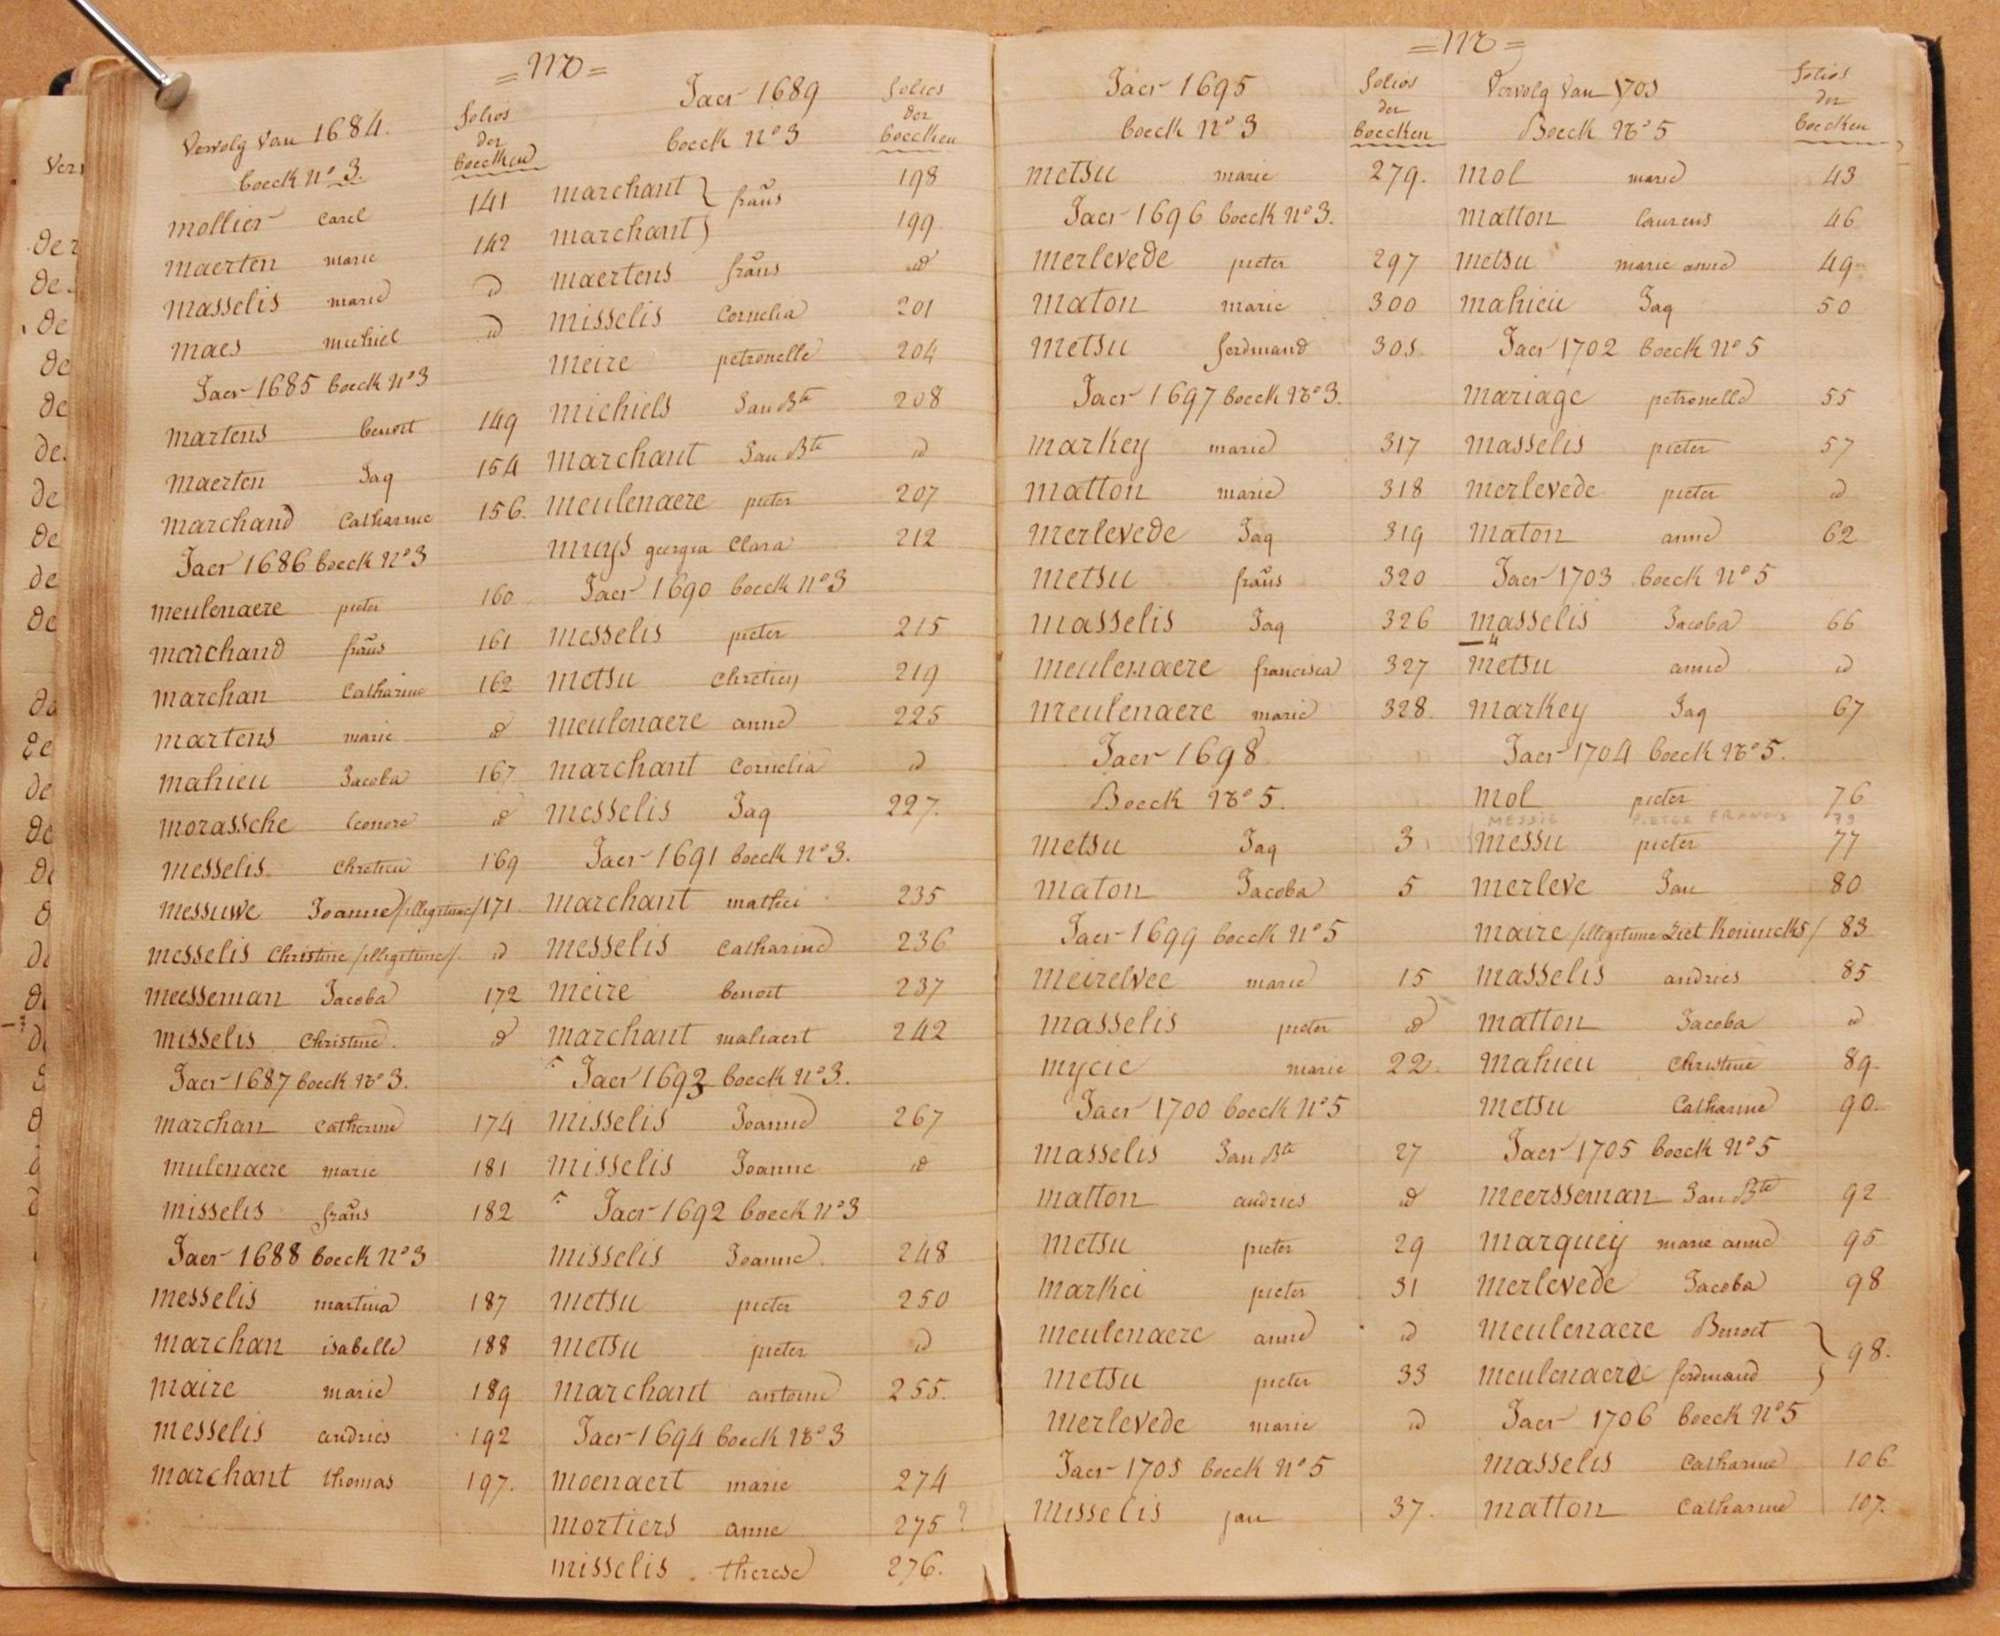 = M =
Vervolg van 1684.
boeck N° 3.
folios
der
boecken
mollier carel 141
maerten marie 142
masselis marie id
maes michiel id
Jaer 1685 boeck N° 3
martens benoit 149
maerten Jaq 154
marchand Catharine 156.
Jaer 1686 boeck N° 3
meulenaere pieter 160
marchand frans 161
marchan Catharine 162
martens marie id
mahieu Jacoba 167
morassche leonore id
messelis chretien 169
messuwe Joanne /illegitime/ 171
messelis Christine /illegitime/. id
meesseman Jacoba 172
misselis Christine. id
Jaer 1687 boeck N° 3.
marchan Catherine 174
mulenaere marie 181
misselis frans 182
Jaer 1688 boeck N° 3
messelis martina 187
marchan isabelle 188
maire marie 189
messelis andries 192
marchant thomas 197.
Jaer 1689
boeck N° 3
folios
der
boecken
marchant } frans 198
marchant } 199
maertens frans id
misselis Cornelia 201
meire petronelle 204
michiels Jan Bte 208
marchant Jan Bte id
meulenaere pieter 207
muys georgia Clara 212
Jaer 1690 boeck N° 3
messelis pieter 215
metsu chretien 219
meulenaere anne 225
marchant Cornelia id
messelis Jaq 227.
Jaer 1691 boeck N° 3.
marchant mathei 235
messelis Catharine 236
meire benoit 237
marchant maliaert 242
Jaer 1693 boeck N° 3.
misselis Joanne 267
misselis Joanne id
Jaer 1692 boeck N° 3
misselis Joanne 248
metsu pieter 250
metsu pieter id
marchant antoine 255.
Jaer 1694 boeck N° 3
moenaert marie 274
mortiers anne 275 ?
misselis. therese 276.
= M =
Jaer 1695
boeck N° 3
folios
der
boecken
metsu marie 279.
Jaer 1696 boeck N° 3.
merlevede pieter 297
maton marie 300
metsu ferdinand 301
Jaer 1697 boeck N° 3.
markey marie 317
matton marie 318
merlevede Jaq 319
metsu frans 320
masselis Jaq 326
meulenaere francisca 327
meulenaere marie 328.
Jaer 1698
Boeck N° 5.
metsu Jaq 3
maton Jacoba 5
Jaer 1699 boeck N° 5
meirelvee marie 15
masselis pieter id
mycie marie 22.
Jaer 1700 boeck N° 5
masselis Jan Bte 27
matton andries id
metsu pieter 29
markei pieter 31
meulenaere anne id
metsu pieter 33
merlevede marie id
Jaer 1701 boeck N° 5
misselis jan 37.
Vervolg van 1701
Boeck N° 5
folios
der
boecken
mol marie 43
matton laurens 46
metsu marie anne 49
mahieu Jaq 50
Jaer 1702 boeck N° 5
mariage petronelle 55
masselis pieter 57
merlevede pieter id
maton anne 62
Jaer 1703 boeck N° 5
masselis Jacoba 66
metsu anne id
markey Jaq 67
Jaer 1704 boeck N° 5.
mol pieter 76
MESSIE PIETER FRANCIS 79
messu pieter 77
merleve Jan 80
maire /illegitime ziet Konincks/ 83
masselis andries 85
matton Jacoba id
mahieu Christine 89
metsu Catharine 90.
Jaer 1705 boeck N° 5
meersseman Jan Bte 92
marquey marie anne 95
merlevede Jacoba 98
meulenaere Benoit }
meulenaere ferdinand } 98.
Jaer 1706 boeck N° 5
masselis Catharine 106
matton Catharine 107.